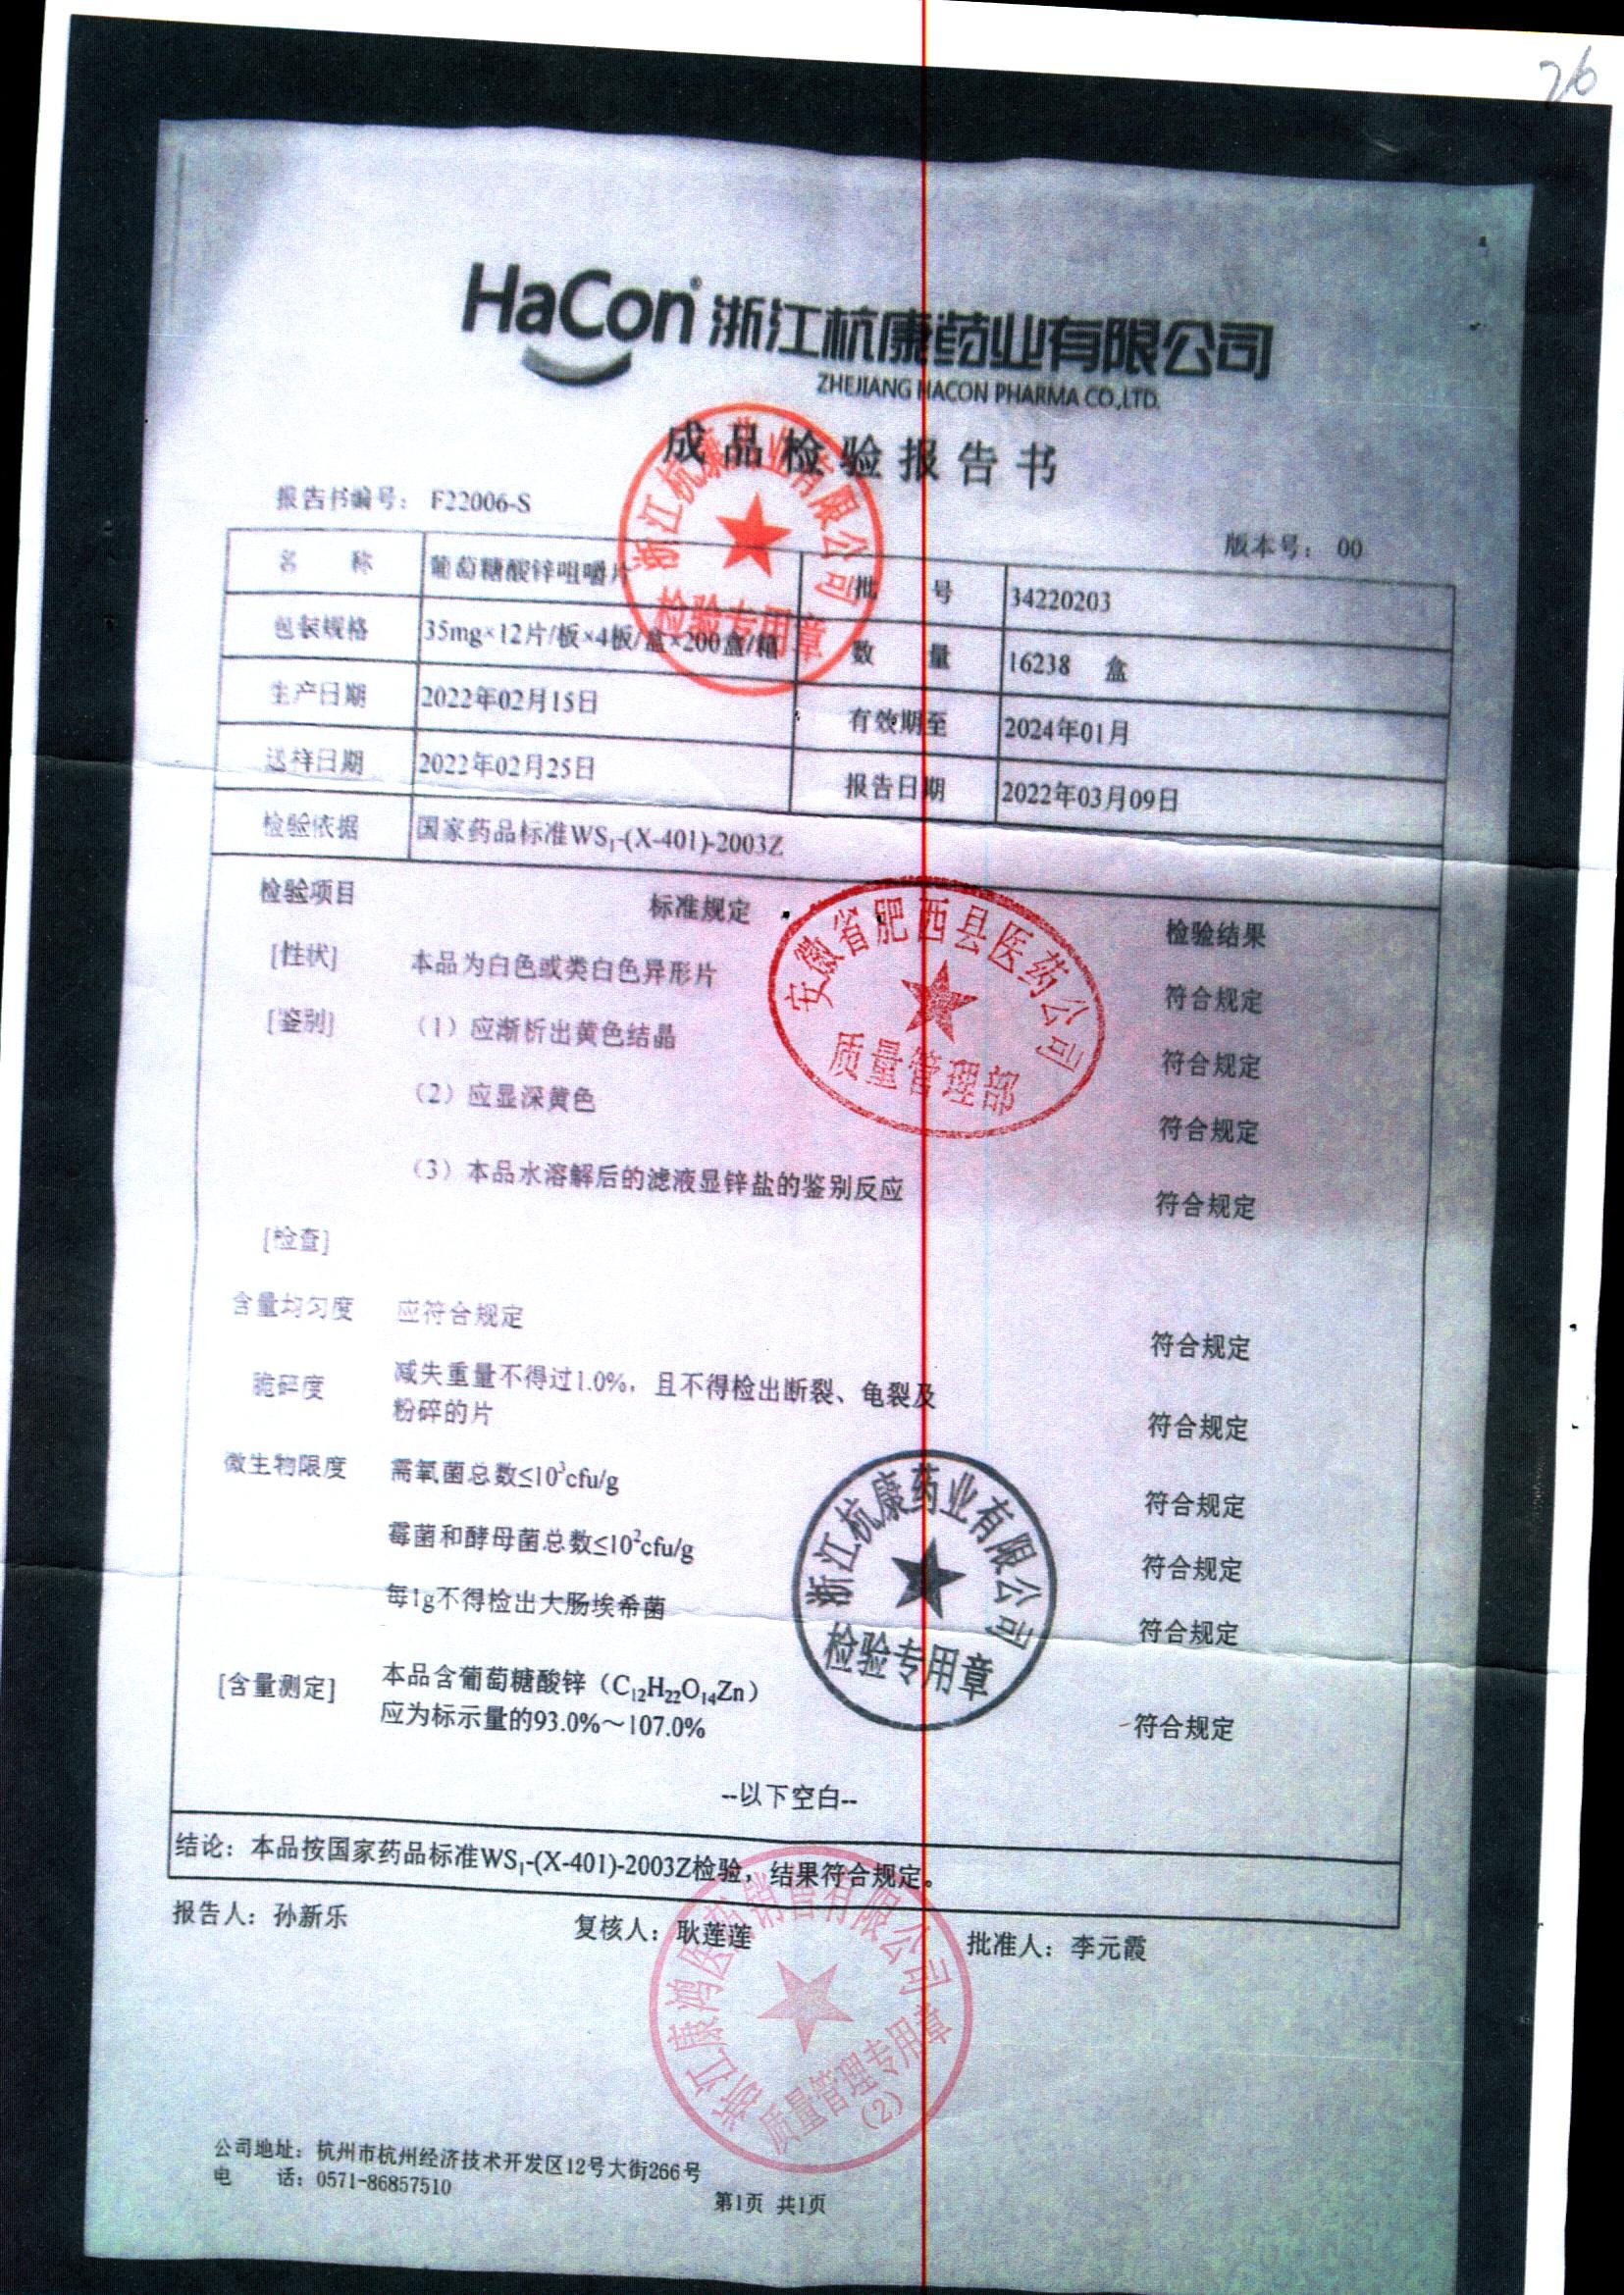 26
HaCon® 浙江杭康药业有限公司
ZHEJIANG HACON PHARMA CO.,LTD.
成品检验报告书
报告书编号： F22006-S
版本号： 00
名 称 葡萄糖酸锌咀嚼片 批 号 34220203
包装规格 35mg×12片/板×4板/盒×200盒/箱 数 量 16238 盒
生产日期 2022年02月15日 有效期至 2024年01月
送样日期 2022年02月25日 报告日期 2022年03月09日
检验依据 国家药品标准WS₁-(X-401)-2003Z
检验项目 标准规定 检验结果
[性状] 本品为白色或类白色异形片 符合规定
[鉴别] （1）应渐析出黄色结晶 符合规定
（2）应显深黄色 符合规定
（3）本品水溶解后的滤液显锌盐的鉴别反应 符合规定
[检查]
含量均匀度 应符合规定 符合规定
脆碎度 减失重量不得过1.0%，且不得检出断裂、龟裂及
粉碎的片 符合规定
微生物限度 需氧菌总数≤10³cfu/g 符合规定
霉菌和酵母菌总数≤10²cfu/g 符合规定
每1g不得检出大肠埃希菌 符合规定
[含量测定] 本品含葡萄糖酸锌（C₁₂H₂₂O₁₄Zn）
应为标示量的93.0%～107.0% 符合规定
--以下空白--
结论：本品按国家药品标准WS₁-(X-401)-2003Z检验，结果符合规定。
报告人：孙新乐 复核人：耿莲莲 批准人：李元霞
公司地址：杭州市杭州经济技术开发区12号大街266号
电 话：0571-86857510
第1页 共1页
浙江杭康药业有限公司
检验专用章
安徽省肥西县医药公司
质量管理部
浙江杭康药业有限公司
检验专用章
浙江康鸿医药销售有限公司
质量管理专用章
(2)